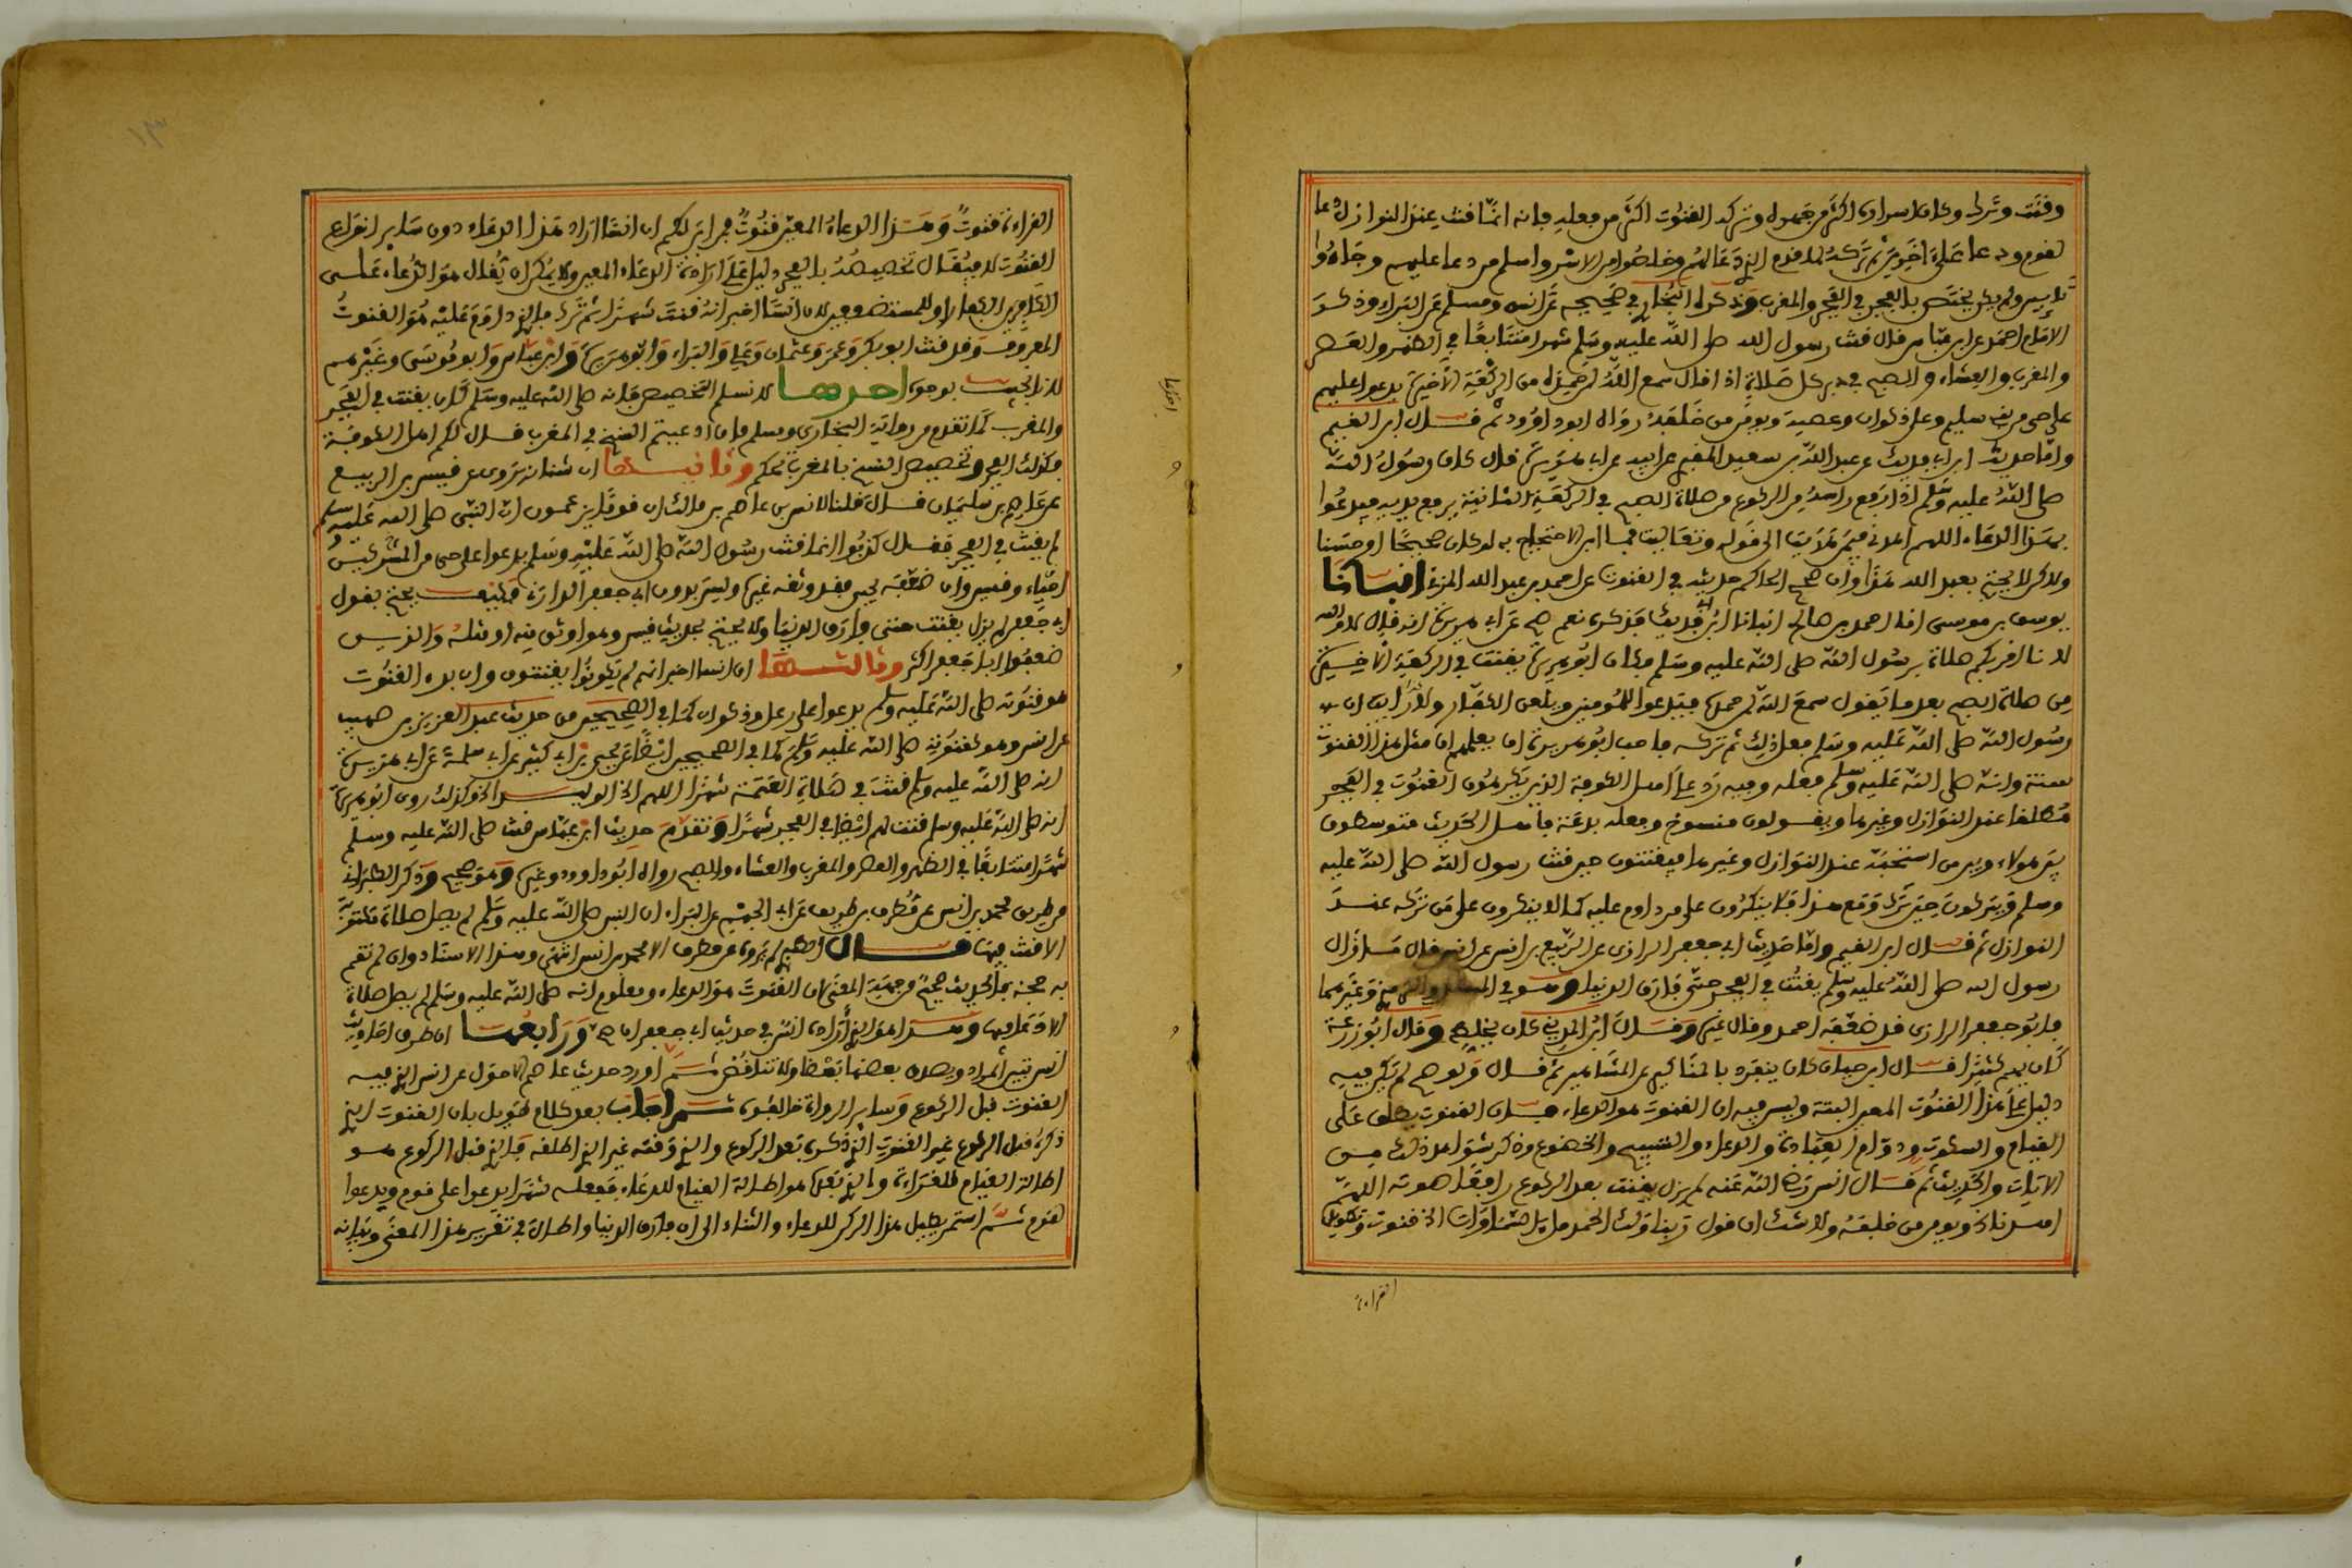 وقنت وترك وكان اسراره اكثر من جهره وتركه القنوت اكثر من فعله فانه انما قنت عند النوازل للدعا
لقوم ودعا على اخرين ثم تركه لما قدم الذي دعا لهم وخلصوا من الاسر واسلم من دعا عليهم وجاءوا
تايبين ولم يكن يختص بالفجر في الفجر والمغرب وذكره البخاري في صحيحه عن انس ومسلم عن البراء وذكر
الامام احمد عن ابن عباس قال قنت رسول الله صلى الله عليه وسلم شهرا متتابعا في الظهر والعصر
والمغرب والعشاء والصبح في دبر كل صلاة اذا قال سمع الله لمن حمده من الركعة الاخيرة يدعوا عليهم
على حي من بني سليم وعلى ذكوان وعصية ويومن من خلفه رواه ابو داوود ثم قال ابن القيم
واما حديث ابن ابي فديك عن عبد الله بن سعيد المقبري عن ابيه عن ابي هريرة قال كان رسول الله
صلى الله عليه وسلم اذا رفع راسه من الركوع من صلاة الصبح في الركعة الثانية يرفع يديه فيدعوا
بهذا الدعاء اللهم اهدني فيمن هديت الى قوله وتعاليت فما ابين الاحتجاج به لو كان صحيحا او حسنا
ولاكن لا يحتج بعبد الله هذا وان صحح الحاكم حديثه في القنوت عن احمد بن عبد الله المزني انبانا
يوسف بن موسى انا احمد بن صالح انبانا ابن ابي فديك فذكره نعم صح عن ابي هريرة انه قال والله
لانا اقربكم صلاة برسول الله صلى الله عليه وسلم فكان ابو هريرة يقنت في الركعة الاخيرة
من صلاة الصبح بعد ما يقول سمع الله لمن حمده فيدعوا للمومنين ويلعن الكفار ولا ان
رسول الله صلى الله عليه وسلم فعل ذلك ثم تركه فاحب ابو هريرة ان يعلمهم ان مثل هذا القنوت
سنة وانه صلى الله عليه وسلم فعله وفيه رد على اهل الكوفة الذين يكرهون القنوت في الفجر
مطلقا عند النوازل وغيرها ويقولون منسوخ وفعله بدعة فاهل الحديث متوسطون
بين هولاء وبين من استحبه عند النوازل وغيرها فيقنتون حين قنت رسول الله صلى الله عليه
وسلم ويتركون حين ترك ومع هذا فلا ينكرون على من داوم عليه كما لا ينكرون على من تركه عند
النوازل ثم قال ابن القيم واما حديث ابي جعفر الرازي عن الربيع بن انس عن انس قال ما زال
رسول الله صلى الله عليه وسلم يقنت في الفجر حتى فارق الدنيا وهو في المسند والترمذي وغيرهما
فابو جعفر الرازي قد ضعفه احمد وقال غيره وقال ابن المديني كان يخلط وقال ابو زرعة
كان يهم كثيرا قال ابن حبان كان ينفرد بالمناكير عن المشاهير ثم قال ولو صح لم يكن فيه
دليل على هذا القنوت المعين البتة وليس فيه ان القنوت هو الدعاء فان القنوت يطلق على
القيام والسكوت ودوام العبادة والدعاء والتسبيح والخضوع وذكر شواهد ذلك من
الايات والحديث ثم قال انس رضي الله عنه لم يزل يقنت بعد الركوع رافعا صوته اللهم
اهدنا الخ ويومن من خلفه ولا شك ان قول ربنا ولك الحمد ملء السماوات الخ قنوت وتطويل
القراءة
القراءة قنوت وهذا الدعاء المعين قنوت فمن اين لكم ان انسا اراد هذا الدعاء دون ساير انواع
القنوت لا يقال تخصيصه بالفجر دليل على ارادة الدعاء المعين ولا يمكن ان يقال هو الدعاء على
الكافرين الكفار او للمستضعفين لان انسا اخبر انه قنت شهرا ثم تركه فالذي داوم عليه هو القنوت
المعروف وقد قنت ابو بكر وعمر وعثمان وعلي والبراء وابو هريرة وابن عباس وابو موسى وغيرهم
لانا نجيب بوجوه احدها لا نسلم التخصيص فانه صلى الله عليه وسلم كان يقنت في الفجر
والمغرب كما تقدم من رواية البخاري ومسلم فان ادعيتم النسخ في المغرب قال لكم اهل الكوفة
وكذلك الفجر وتخصيص النسخ بالمغرب تحكم وثانيها ان شبابة روى عن قيس بن الربيع
عن عاصم بن سليمان قال قلنا لانس بن مالك ان قوما يزعمون ان النبي صلى الله عليه وسلم
لم يقنت في الفجر فقال كذبوا انما قنت رسول الله صلى الله عليه وسلم يدعوا على حي من المشركين
احياء وقيس وان ضعفه يحيى فقد وثقه غيره وليس بدون ابي جعفر الرازي فكيف يحتج بقول
ابي جعفر لم يزل يقنت حتى فارق الدنيا ولا يحتج بحديث قيس وهو اوثق منه او مثله والذين
ضعفوا ابا جعفر اكثر وثالثها ان انسا اخبر انهم لم يكونوا يقنتون وان بدء القنوت
هو قنوته صلى الله عليه وسلم يدعوا على رعل وذكوان كما في الصحيحين من حديث عبد العزيز بن صهيب
عن انس وهو كقنوته صلى الله عليه وسلم كما في الصحيحين ايضا عن يحيى بن ابي كثير عن ابي سلمة عن ابي هريرة
انه صلى الله عليه وسلم قنت في صلاة العتمة شهرا اللهم انج الوليد الخ وكذلك روى ابو هريرة
انه صلى الله عليه وسلم قنت لهم ايضا في الفجر شهرا وتقدم حديث ابن عباس قنت صلى الله عليه وسلم
شهرا متتابعا في الظهر والعصر والمغرب والعشاء والصبح رواه ابو داوود وغيره وهو صحيح وذكر الطبراني
من طريق محمد بن انس عن مطرف بن طريف عن ابي الجهم عن البراء ان النبي صلى الله عليه وسلم لم يصل صلاة مكتوبة
الا قنت فيها قال الطبراني لم يروه عن مطرف الا محمد بن انس انتهى وهذا الاسناد وان لم تقم
به حجة فالحديث صحيح من جهة المعنى لان القنوت هو الدعاء ومعلوم انه صلى الله عليه وسلم لم يصل صلاة
الا دعا فيها وهذا هو الذي اراده انس في حديث ابي جعفر ان صح ورابعها ان طرق احاديث
انس تبين المراد ويصدق بعضها بعضا ولا تتناقض ثم اورد حديث عاصم الاحول عن انس الذي فيه
القنوت قبل الركوع وساير الرواة خالفوه ثم اجاب بعد كلام طويل بان القنوت الذي
ذكره قبل الركوع غير القنوت الذي ذكره بعد الركوع والذي وقته غير الذي اطلقه فالذي قبل الركوع هو
اطالة القيام للقراءة والذي بعده هو اطالة القيام للدعاء ففعله شهرا يدعوا على قوم ويدعوا
لقوم ثم استمر يطيل هذا الركن للدعاء والثناء الى ان فارق الدنيا واطال في تقرير هذا المعنى وبيانه